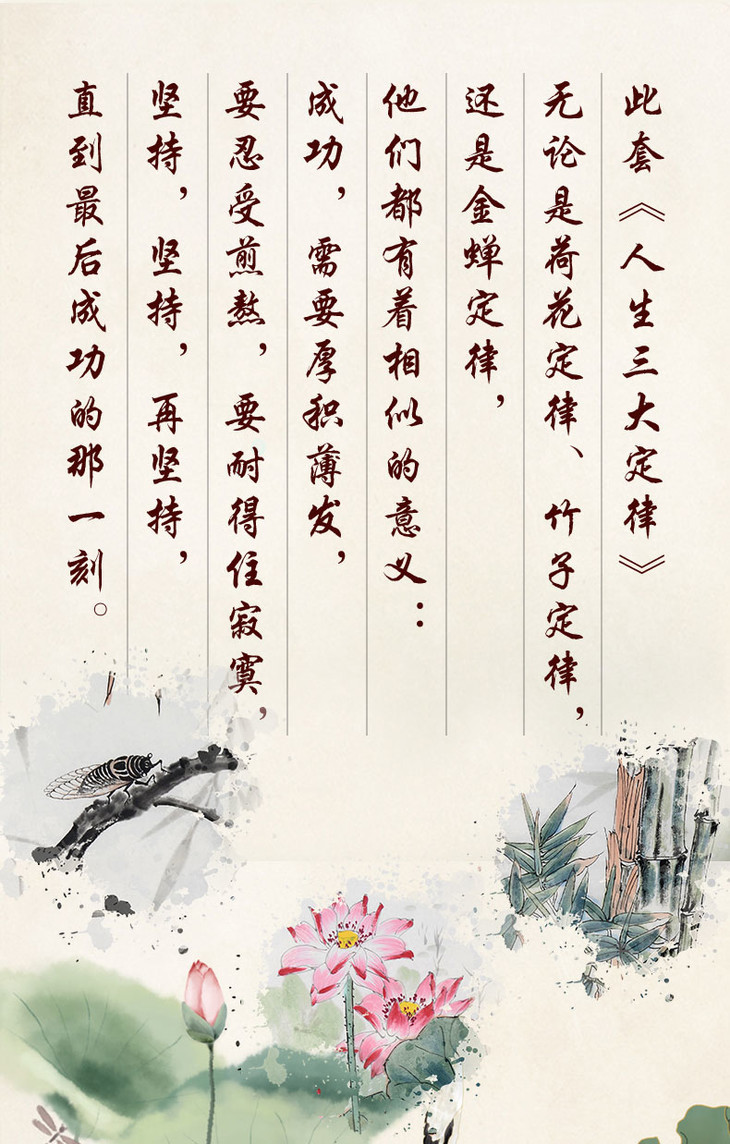 此套《人生三大定律》
无论是荷花定律、竹子定律，
还是金蝉定律，
他们都有着相似的意义：
成功，需要厚积薄发，
要忍受煎熬，要耐得住寂寞，
坚持，坚持，再坚持，
直到最后成功的那一刻。